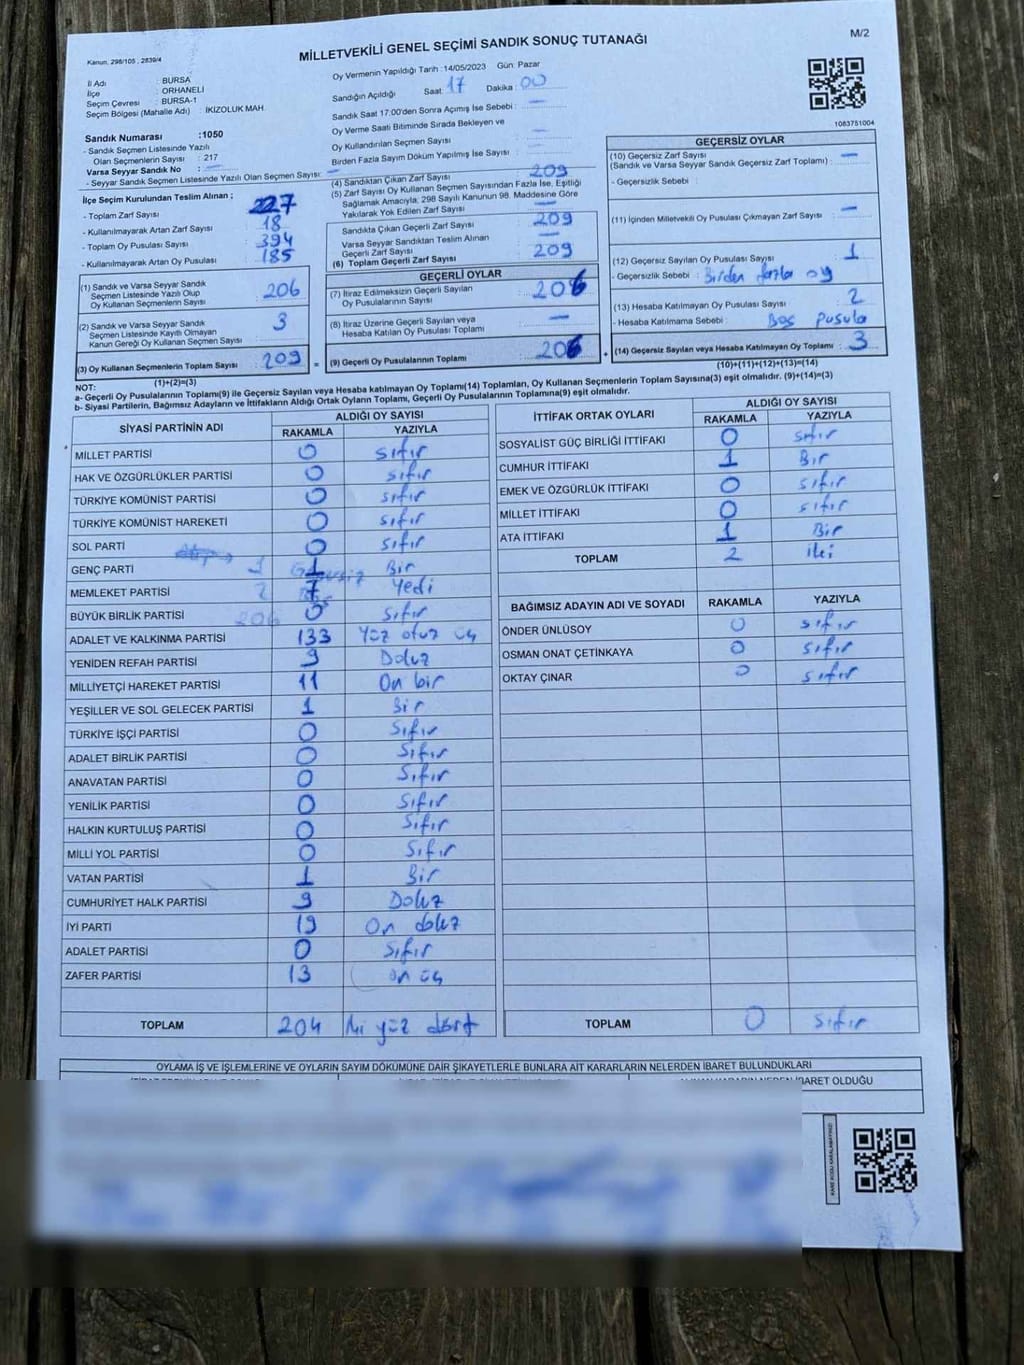 MİLLETVEKİLİ GENEL SEÇİMİ SANDIK SONUÇ TUTANAĞI
M/2
Kanun, 298/105 , 2839/4
İl Adı : BURSA
İlçe : ORHANELİ
Seçim Çevresi : BURSA-1
Seçim Bölgesi (Mahalle Adı) : İKİZOLUK MAH.
Sandık Numarası :1050
- Sandık Seçmen Listesinde Yazılı
Olan Seçmenlerin Sayısı : 217
Varsa Seyyar Sandık No : —
- Seyyar Sandık Seçmen Listesinde Yazılı Olan Seçmen Sayısı: —
Oy Vermenin Yapıldığı Tarih :14/05/2023 Gün: Pazar
Sandığın Açıldığı Saat: 17 Dakika : 00
Sandık Saat 17:00'den Sonra Açımış İse Sebebi : —
Oy Verme Saati Bitiminde Sırada Bekleyen ve
Oy Kullandırılan Seçmen Sayısı : —
Birden Fazla Sayım Döküm Yapılmış İse Sayısı : —
1083751004
İlçe Seçim Kurulundan Teslim Alınan ;
- Toplam Zarf Sayısı : 227
- Kullanılmayarak Artan Zarf Sayısı : 18
- Toplam Oy Pusulası Sayısı : 394
- Kullanılmayarak Artan Oy Pusulası : 185
(1) Sandık ve Varsa Seyyar Sandık
Seçmen Listesinde Yazılı Olup
Oy Kullanan Seçmenlerin Sayısı : 206
(2) Sandık ve Varsa Seyyar Sandık
Seçmen Listesinde Kayıtlı Olmayan
Kanun Gereği Oy Kullanan Seçmen Sayısı : 3
(3) Oy Kullanan Seçmenlerin Toplam Sayısı : 209
(1)+(2)=(3)
(4) Sandıktan Çıkan Zarf Sayısı : 209
(5) Zarf Sayısı Oy Kullanan Seçmen Sayısından Fazla İse, Eşitliği
Sağlamak Amacıyla; 298 Sayılı Kanunun 98. Maddesine Göre
Yakılarak Yok Edilen Zarf Sayısı : —
Sandıkta Çıkan Geçerli Zarf Sayısı : 209
Varsa Seyyar Sandıktan Teslim Alınan
Geçerli Zarf Sayısı : —
(6) Toplam Geçerli Zarf Sayısı : 209
GEÇERLİ OYLAR
(7) İtiraz Edilmeksizin Geçerli Sayılan
Oy Pusulalarının Sayısı : 206
(8) İtiraz Üzerine Geçerli Sayılan veya
Hesaba Katılan Oy Pusulası Toplamı : —
= (9) Geçerli Oy Pusulalarının Toplamı : 206 +
GEÇERSİZ OYLAR
(10) Geçersiz Zarf Sayısı
(Sandık ve Varsa Seyyar Sandık Geçersiz Zarf Toplamı) : —
- Geçersizlik Sebebi :
(11) İçinden Milletvekili Oy Pusulası Çıkmayan Zarf Sayısı : —
(12) Geçersiz Sayılan Oy Pusulası Sayısı : 1
- Geçersizlik Sebebi : Birden fazla oy
(13) Hesaba Katılmayan Oy Pusulası Sayısı : 2
- Hesaba Katılmama Sebebi : Boş pusula
(14) Geçersiz Sayılan veya Hesaba Katılmayan Oy Toplamı : 3
(10)+(11)+(12)+(13)=(14)
NOT:
a- Geçerli Oy Pusulalarının Toplamı(9) ile Geçersiz Sayılan veya Hesaba katılmayan Oy Toplamı(14) Toplamları, Oy Kullanan Seçmenlerin Toplam Sayısına(3) eşit olmalıdır. (9)+(14)=(3)
b- Siyasi Partilerin, Bağımsız Adayların ve İttifakların Aldığı Ortak Oyların Toplamı, Geçerli Oy Pusulalarının Toplamına(9) eşit olmalıdır.
SİYASİ PARTİNİN ADI ALDIĞI OY SAYISI
RAKAMLA YAZIYLA
MİLLET PARTİSİ 0 sıfır
HAK VE ÖZGÜRLÜKLER PARTİSİ 0 sıfır
TÜRKİYE KOMÜNİST PARTİSİ 0 sıfır
TÜRKİYE KOMÜNİST HAREKETİ 0 sıfır
SOL PARTİ 0 sıfır
GENÇ PARTİ 1 1 Bir
MEMLEKET PARTİSİ 2 7 Yedi
BÜYÜK BİRLİK PARTİSİ 206 0 sıfır
ADALET VE KALKINMA PARTİSİ 133 Yüz otuz üç
YENİDEN REFAH PARTİSİ 9 Dokuz
MİLLİYETÇİ HAREKET PARTİSİ 11 On bir
YEŞİLLER VE SOL GELECEK PARTİSİ 1 Bir
TÜRKİYE İŞÇİ PARTİSİ 0 Sıfır
ADALET BİRLİK PARTİSİ 0 Sıfır
ANAVATAN PARTİSİ 0 Sıfır
YENİLİK PARTİSİ 0 Sıfır
HALKIN KURTULUŞ PARTİSİ 0 Sıfır
MİLLİ YOL PARTİSİ 0 Sıfır
VATAN PARTİSİ 1 Bir
CUMHURİYET HALK PARTİSİ 9 Dokuz
İYİ PARTİ 19 On dokuz
ADALET PARTİSİ 0 Sıfır
ZAFER PARTİSİ 13 on üç
TOPLAM 204 İki yüz dört
İTTİFAK ORTAK OYLARI ALDIĞI OY SAYISI
RAKAMLA YAZIYLA
SOSYALİST GÜÇ BİRLİĞİ İTTİFAKI 0 sıfır
CUMHUR İTTİFAKI 1 Bir
EMEK VE ÖZGÜRLÜK İTTİFAKI 0 sıfır
MİLLET İTTİFAKI 0 sıfır
ATA İTTİFAKI 1 Bir
TOPLAM 2 iki
BAĞIMSIZ ADAYIN ADI VE SOYADI RAKAMLA YAZIYLA
ÖNDER ÜNLÜSOY 0 sıfır
OSMAN ONAT ÇETİNKAYA 0 sıfır
OKTAY ÇINAR 0 sıfır
TOPLAM 0 sıfır
OYLAMA İŞ VE İŞLEMLERİNE VE OYLARIN SAYIM DÖKÜMÜNE DAİR ŞİKAYETLERLE BUNLARA AİT KARARLARIN NELERDEN İBARET BULUNDUKLARI
İBARET OLDUĞU
KARE KODU KARALAMAYINIZ!